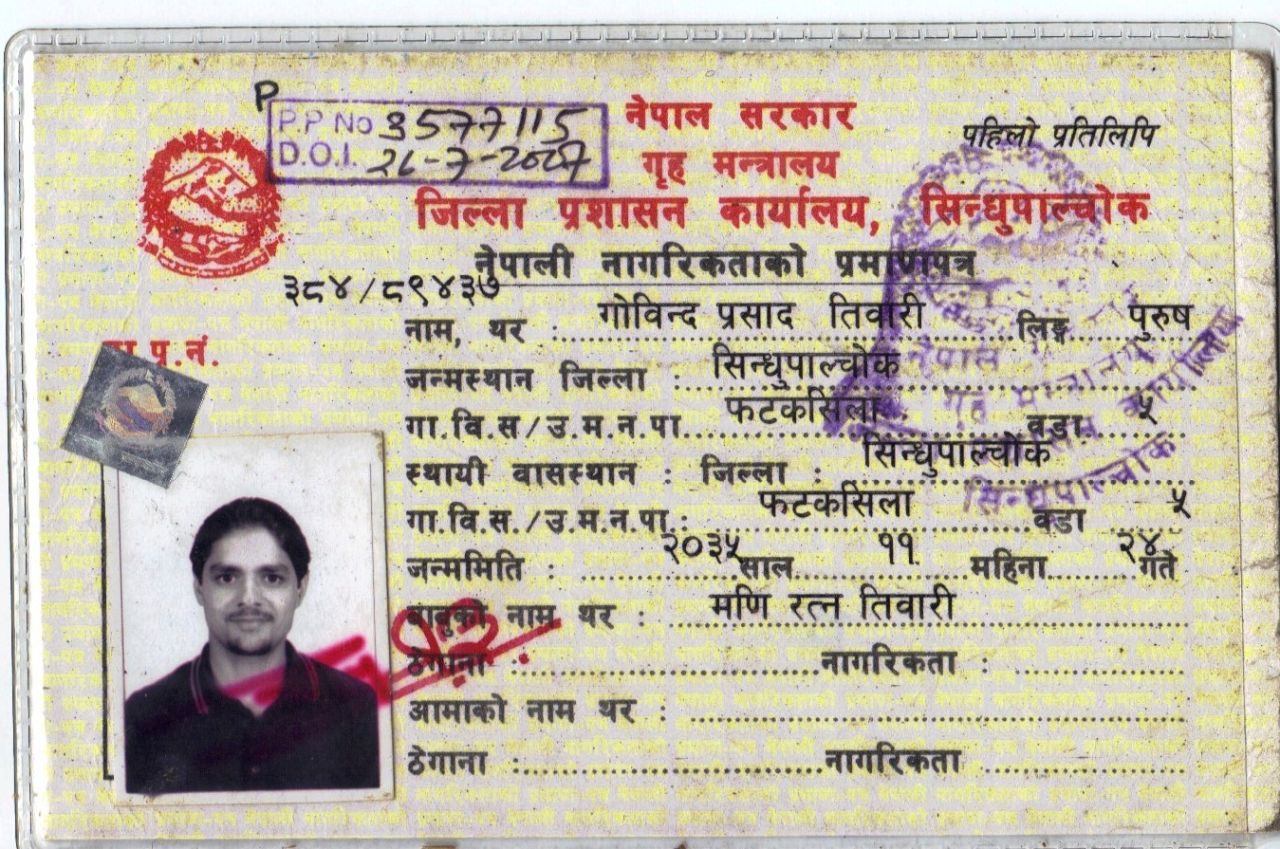 P
P.P No 3577115
D.O.I. 26-7-2007
नेपाल सरकार
गृह मन्त्रालय
जिल्ला प्रशासन कार्यालय, सिन्धुपाल्चोक
पहिलो प्रतिलिपि
नेपाली नागरिकताको प्रमाणपत्र
३८४/८९४३७
प.नं.
नाम, थर : गोविन्द प्रसाद तिवारी लिङ्ग पुरुष
जन्मस्थान जिल्ला : सिन्धुपाल्चोक
गा.वि.स/उ.म.न.पा. फटकसिला वडा ५
स्थायी वासस्थान : जिल्ला : सिन्धुपाल्चोक
गा.वि.स./उ.म.न.पा.: फटकसिला वडा ५
जन्ममिति : २०३५ साल ११ महिना २४ गते
बाबुको नाम थर : मणि रत्न तिवारी
ठेगाना : नागरिकता :
आमाको नाम थर :
ठेगाना : नागरिकता
नेपाल
गृह मन्त्रालय
कार्यालय
सिन्धुपाल्चोक